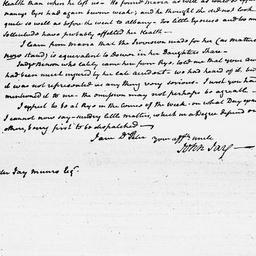 Health than when he left us. He found Maria as well as could be
nancys Eyes had again become weak; and he thought she did not look
quite so well as before she went to albany. Too little Exercise and too m
Solicitude have probably affected her Health —
I learn from Maria that the Provision made for her (as matters
now stand) is equivalent to
in her Daughters Share —
Lady
who lately came from Rye, told me that your
had been much injured by her late accident. We had heard of it, but
it was not represented as any thing very serious. I wish you had
mentioned it to me. the omission may not perhaps be agreable
I expect to be at Rye in the Course of the week. on what Day
I cannot now say. sundry little matters, which in a Degree depend on
others, Every first to be dispatched —
I am Dr Peter your affte uncle
John Jay
Peter Jay Munro Esqr.